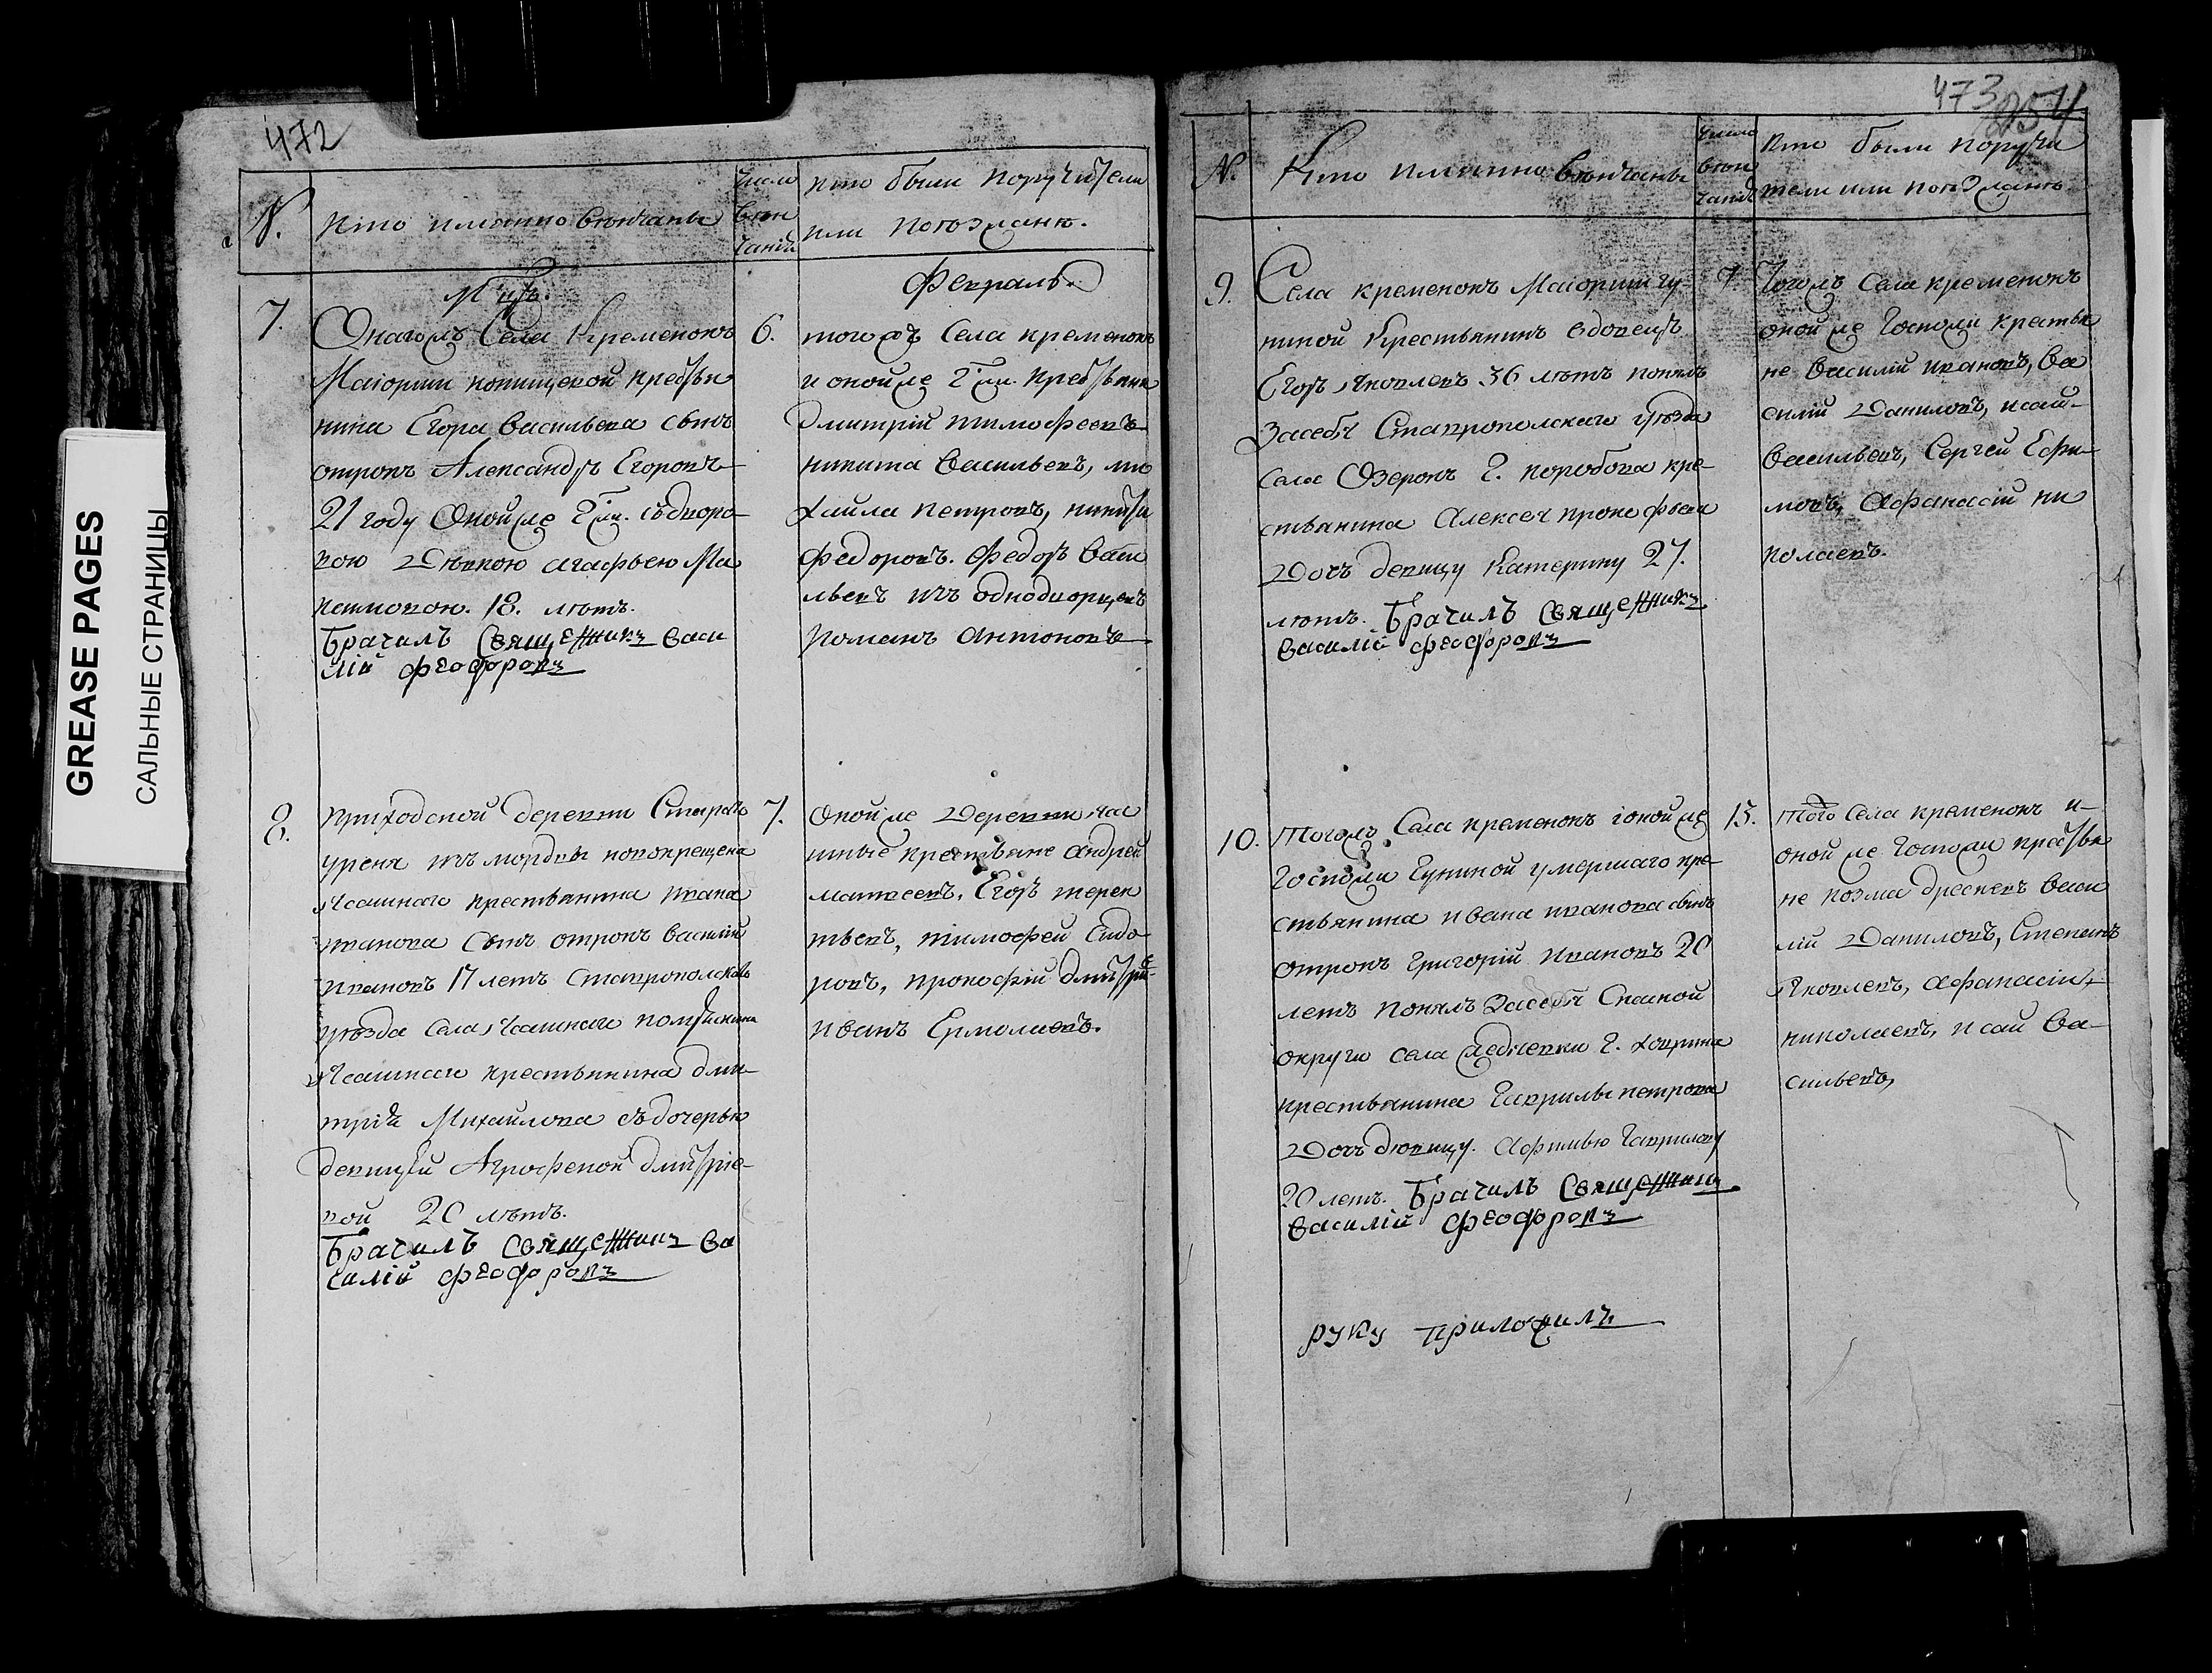 GREASE PAGES
САЛЬНЫЕ СТРАНИЦЫ
472
№.
кто имянно венчаны
число
вен
чаній
кто были поручители
или поезжанѣ.
Мцъ.
Февраль.
7.
Онагожъ Села Кременокъ
Маіорши крестья
нина Егора Васильева сынъ
отрокъ Александръ Егоровъ
21 году Онойже Гжи. съ дворо
вою девкою агафьею Ма
18. летъ.
Брачилъ Священникъ Васи
лій Феофоровъ
6.
тогожъ Села кременокъ
и онойже Гжи. крестьяня
Дмитрій тимофеевъ
никита Васильевъ, ми
хайла петровъ, никита
федоровъ. федоръ Васи
льевъ изъ однодворцевъ
романъ антоновъ
8.
приходской деревни Старагъ
уреня изъ мордвы новокрещена
Ясашнаго крестьянина ивана
иванова сынъ отрокъ василий
ивановъ 17 летъ Ставропольскагъ
уезда Села Ясашнаго
Ясашнаго крестьянина дми
трія Михайлова съ дочерью
девицей Агрофеной дмитріе
вой 20 летъ.
Брачилъ Священникъ Ва
силій Феофоровъ
7.
онойже Деревни Яса
шные крестьяне андрей
матвеевъ, Егоръ терен
тьевъ, тимофей Сидо
ровъ, прокофій дмитріе
иванъ Ермолаевъ.
473
254
№.
Кто имянно венчаны
число
вен
чаній
кто были поручи
тели или поезжанѣ
9.
Села кременокъ Маіорши гу
ниной Крестьянинъ вдовецъ
Егоръ Яковлевъ 36 летъ понялъ
засебя Ставропольскаго уезда
села Озерокъ Г. коробова кре
стьянина Алексея прокофьева
Дочь девицу Катерину 27.
летъ. Брачилъ Священникъ
Василій Феофоровъ
7.
Тогожъ Села кременокъ
онойже Госпожи крестья
не Василій ивановъ, Ва
силій Даниловъ, исай
Васильевъ, Сергей Ефи
мовъ, Афанасій ни
колаевъ.
10.
Тогожъ Села кременокъ іонойже
Госпожи Гуниной умершаго кре
стьянина ивана иванова сынъ
отрокъ Григорій ивановъ 20
летъ понялъ Засебя Спаской
округи села Г. ховрина
крестьянина Гаврилы петрова
Дочь девицу. Афимью Гаврилову
20 летъ. Брачилъ Священникъ
Василій Феофоровъ
руку приложилъ
13.
того Села кременокъ и
онойже Госпожи крестья
не козма Васи
лій Даниловъ, Степанъ
Яковлевъ, Афанасій
николаевъ, исай Ва
сильевъ,